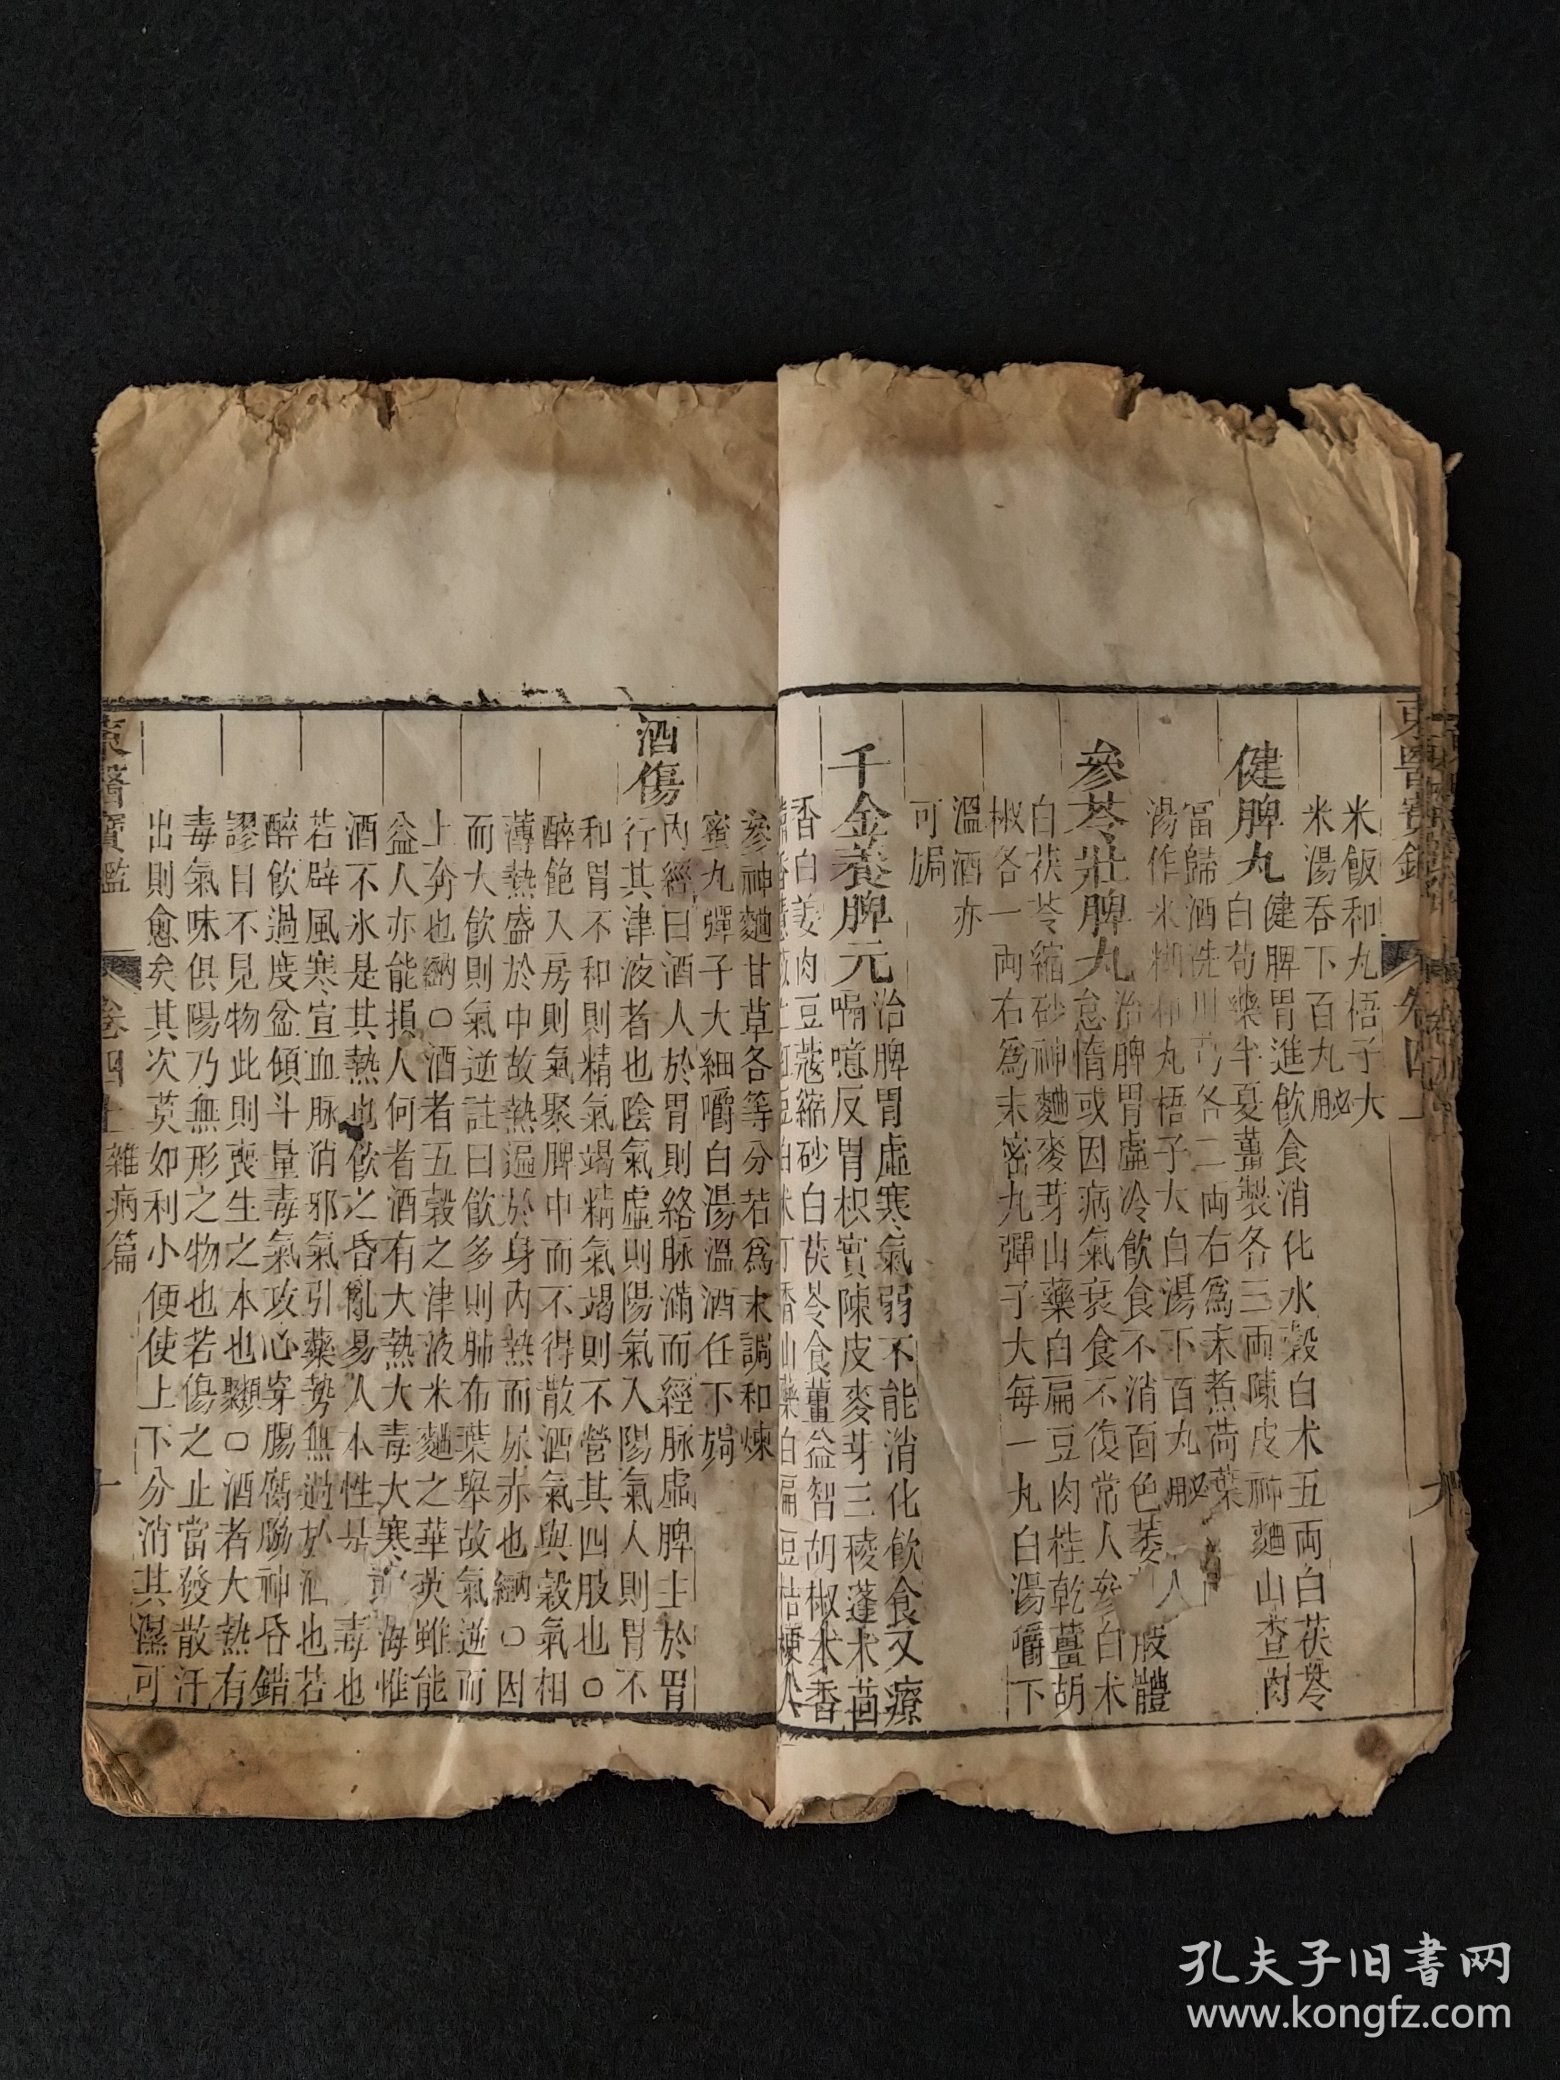 米飯和丸梧子大
米湯吞下百丸胗
健脾丸
健脾胃進飲食消化水穀白术五両白茯苓
白芍藥半夏薑製各三両陳皮神麯山查肉
當歸酒洗川芎各二両右爲末煮荷葉
湯作米糊和丸梧子大白湯下百丸
參苓壯脾丸
治脾胃虛冷飲食不消面色萎
怠惰或因病氣衰食不復常人參白术
白茯苓縮砂神麯麥芽山藥白扁豆肉桂乾薑胡
椒各一両右爲末密丸彈子大每一丸白湯嚼下
溫酒亦
可局
千金養脾元
治脾胃虛寒氣弱不能消化飲食又療
嗝噫反胃枳實陳皮麥芽三稜蓬术茴
香白姜肉豆蔲縮砂白茯苓食薑益智胡椒木香
白扁豆桔梗人
參神麯甘草各等分若爲末調和煉
蜜丸彈子大細嚼白湯溫酒任下局
酒傷
內經曰酒人於胃則絡脉滿而經脉虛脾主於胃
行其津液者也陰氣虛則陽氣入陽氣人則胃不
和胃不和則精氣竭精氣竭則不營其四肢也○
醉飽入房則氣聚脾中而不得散酒氣與穀氣相
薄熱盛於中故熱遍於身內熱而尿赤也綱○因
而大飲則氣逆註曰飲多則肺布葉舉故氣逆而
上奔也綱○酒者五穀之津液米麯之華英雖能
益人亦能損人何者酒有大熱大毒大寒 海惟
酒不氷是其熱也飲之昏亂易人本性是 毒也
若辟風寒宣血脉消邪氣引藥勢無過於酒也若
醉飲過度盆傾斗量毒氣攻心穿腸腐脇神昏錯
謬目不見物此則喪生之本也類○酒者大熱有
毒氣味俱陽乃無形之物也若傷之止當發散汗
出則愈矣其次莫如利小便使上下分消其濕可
東醫寶鑑
卷四上
雜病篇
十
孔夫子旧书网
www.kongfz.com